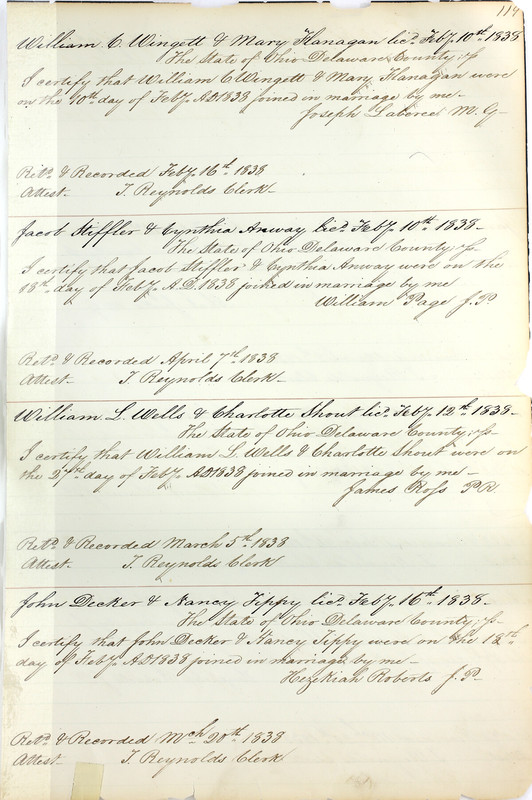 114
William C. Wingett & Mary Flanagan licd. Feby. 10th. 1838
The State of Ohio Delaware County; ss
I certify that William C Wingett & Mary Flanagan were
on the 10th day of Feby. AD1838 joined in marriage by me-
Joseph Laboree M. G-
Retd. & Recorded Feby. 16th. 1838
Attest- T. Reynolds Clerk-
Jacob Stiffler & Cynthia Anway licd. Feby. 10th. 1838-
The State of Ohio Delaware County ss-
I certify that Jacob Stiffler & Cynthia Anway were on the
18th. day of Feby. A.D.1838 joined in marriage by me
William Page J.P.
Retd. & Recorded April 7th. 1838
Attest- T. Reynolds Clerk-
William L. Wells & Charlotte Shout licd. Feby. 12th. 1838-
The State of Ohio Delaware County; ss-
I certify that William L. Wells & Charlotte Shout were on
the 27th. day of Feby. AD1838 joined in marriage by me-
James Ross P.R.
Retd. & Recorded March 5th. 1838
Attest. T. Reynolds Clerk
John Decker & Nancy Tippy licd. Feby. 16th. 1838-
The State of Ohio Delaware County; ss-
I certify that John Decker & Nancy Tippy were on the 18th.
day of Feby. AD1838 joined in marriage by me-
Hezekiah Roberts J.P-
Retd. & Recorded Mch 20th. 1838
Attest. T. Reynolds Clerk